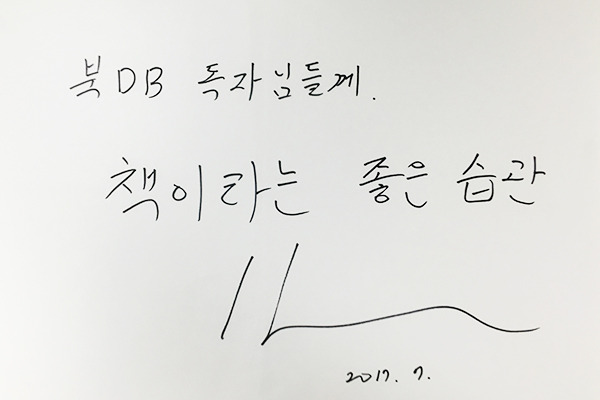 북DB 독자님들께.
책이라는 좋은 습관
2017. 7.